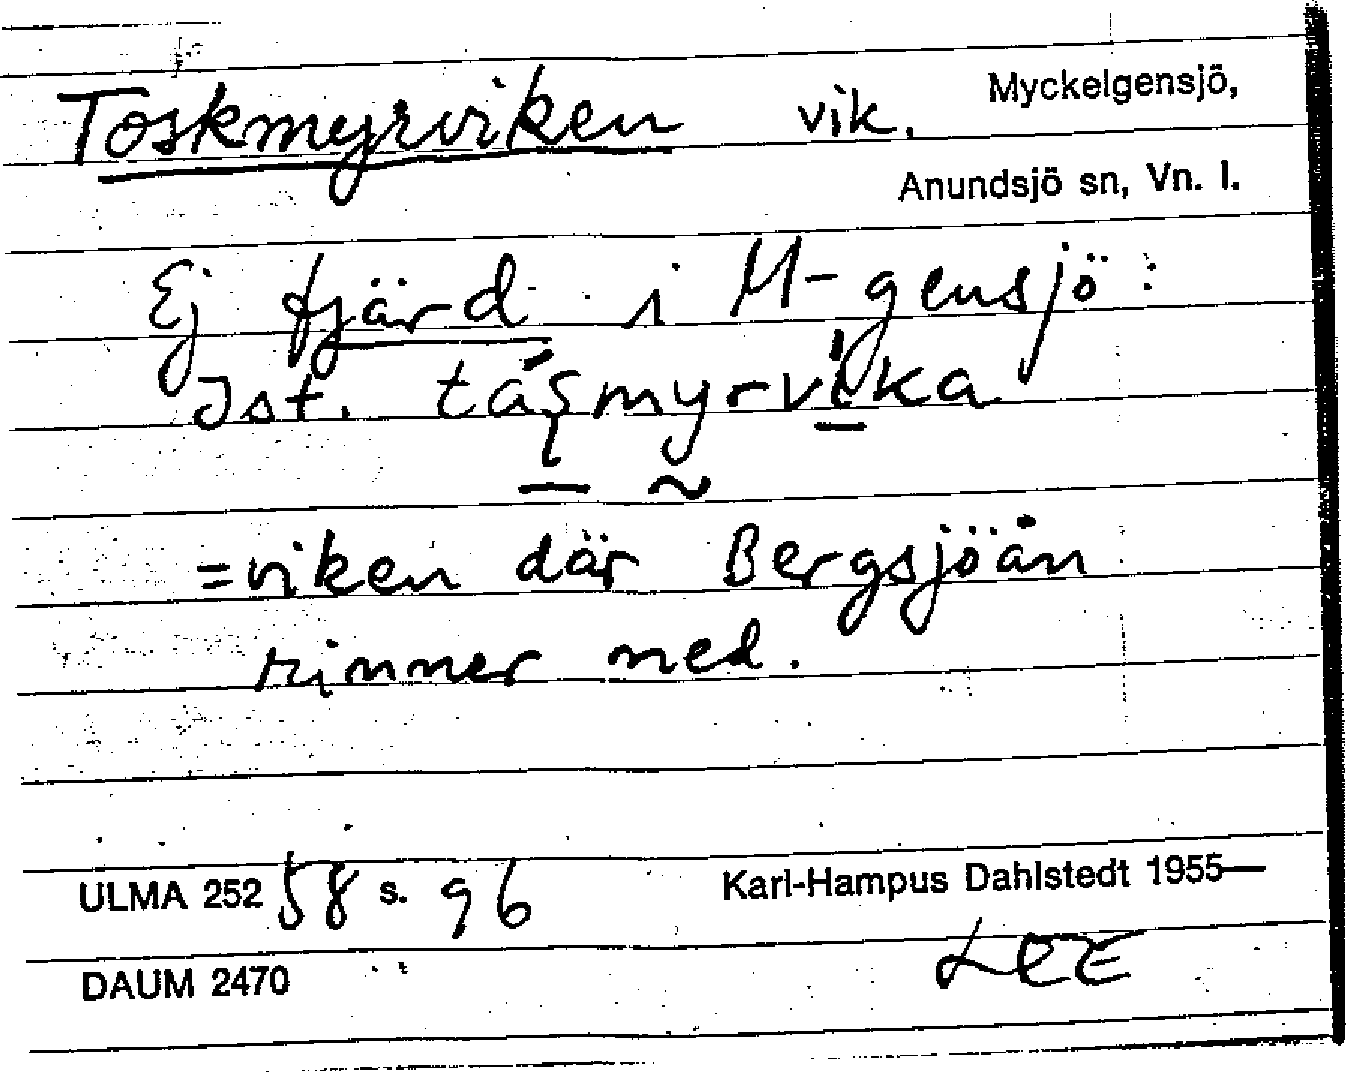 Toskmyrviken vik. Myckelgensjö,
Anundsjö sn, Vn. l.
Ej fjärd i M-gensjö:
Ist. tåşmyrvika
=viken där Bergsjöån
rinner ned.
ULMA 25258 s. 96 Karl-Hampus Dahlstedt 1955—
DAUM 2470